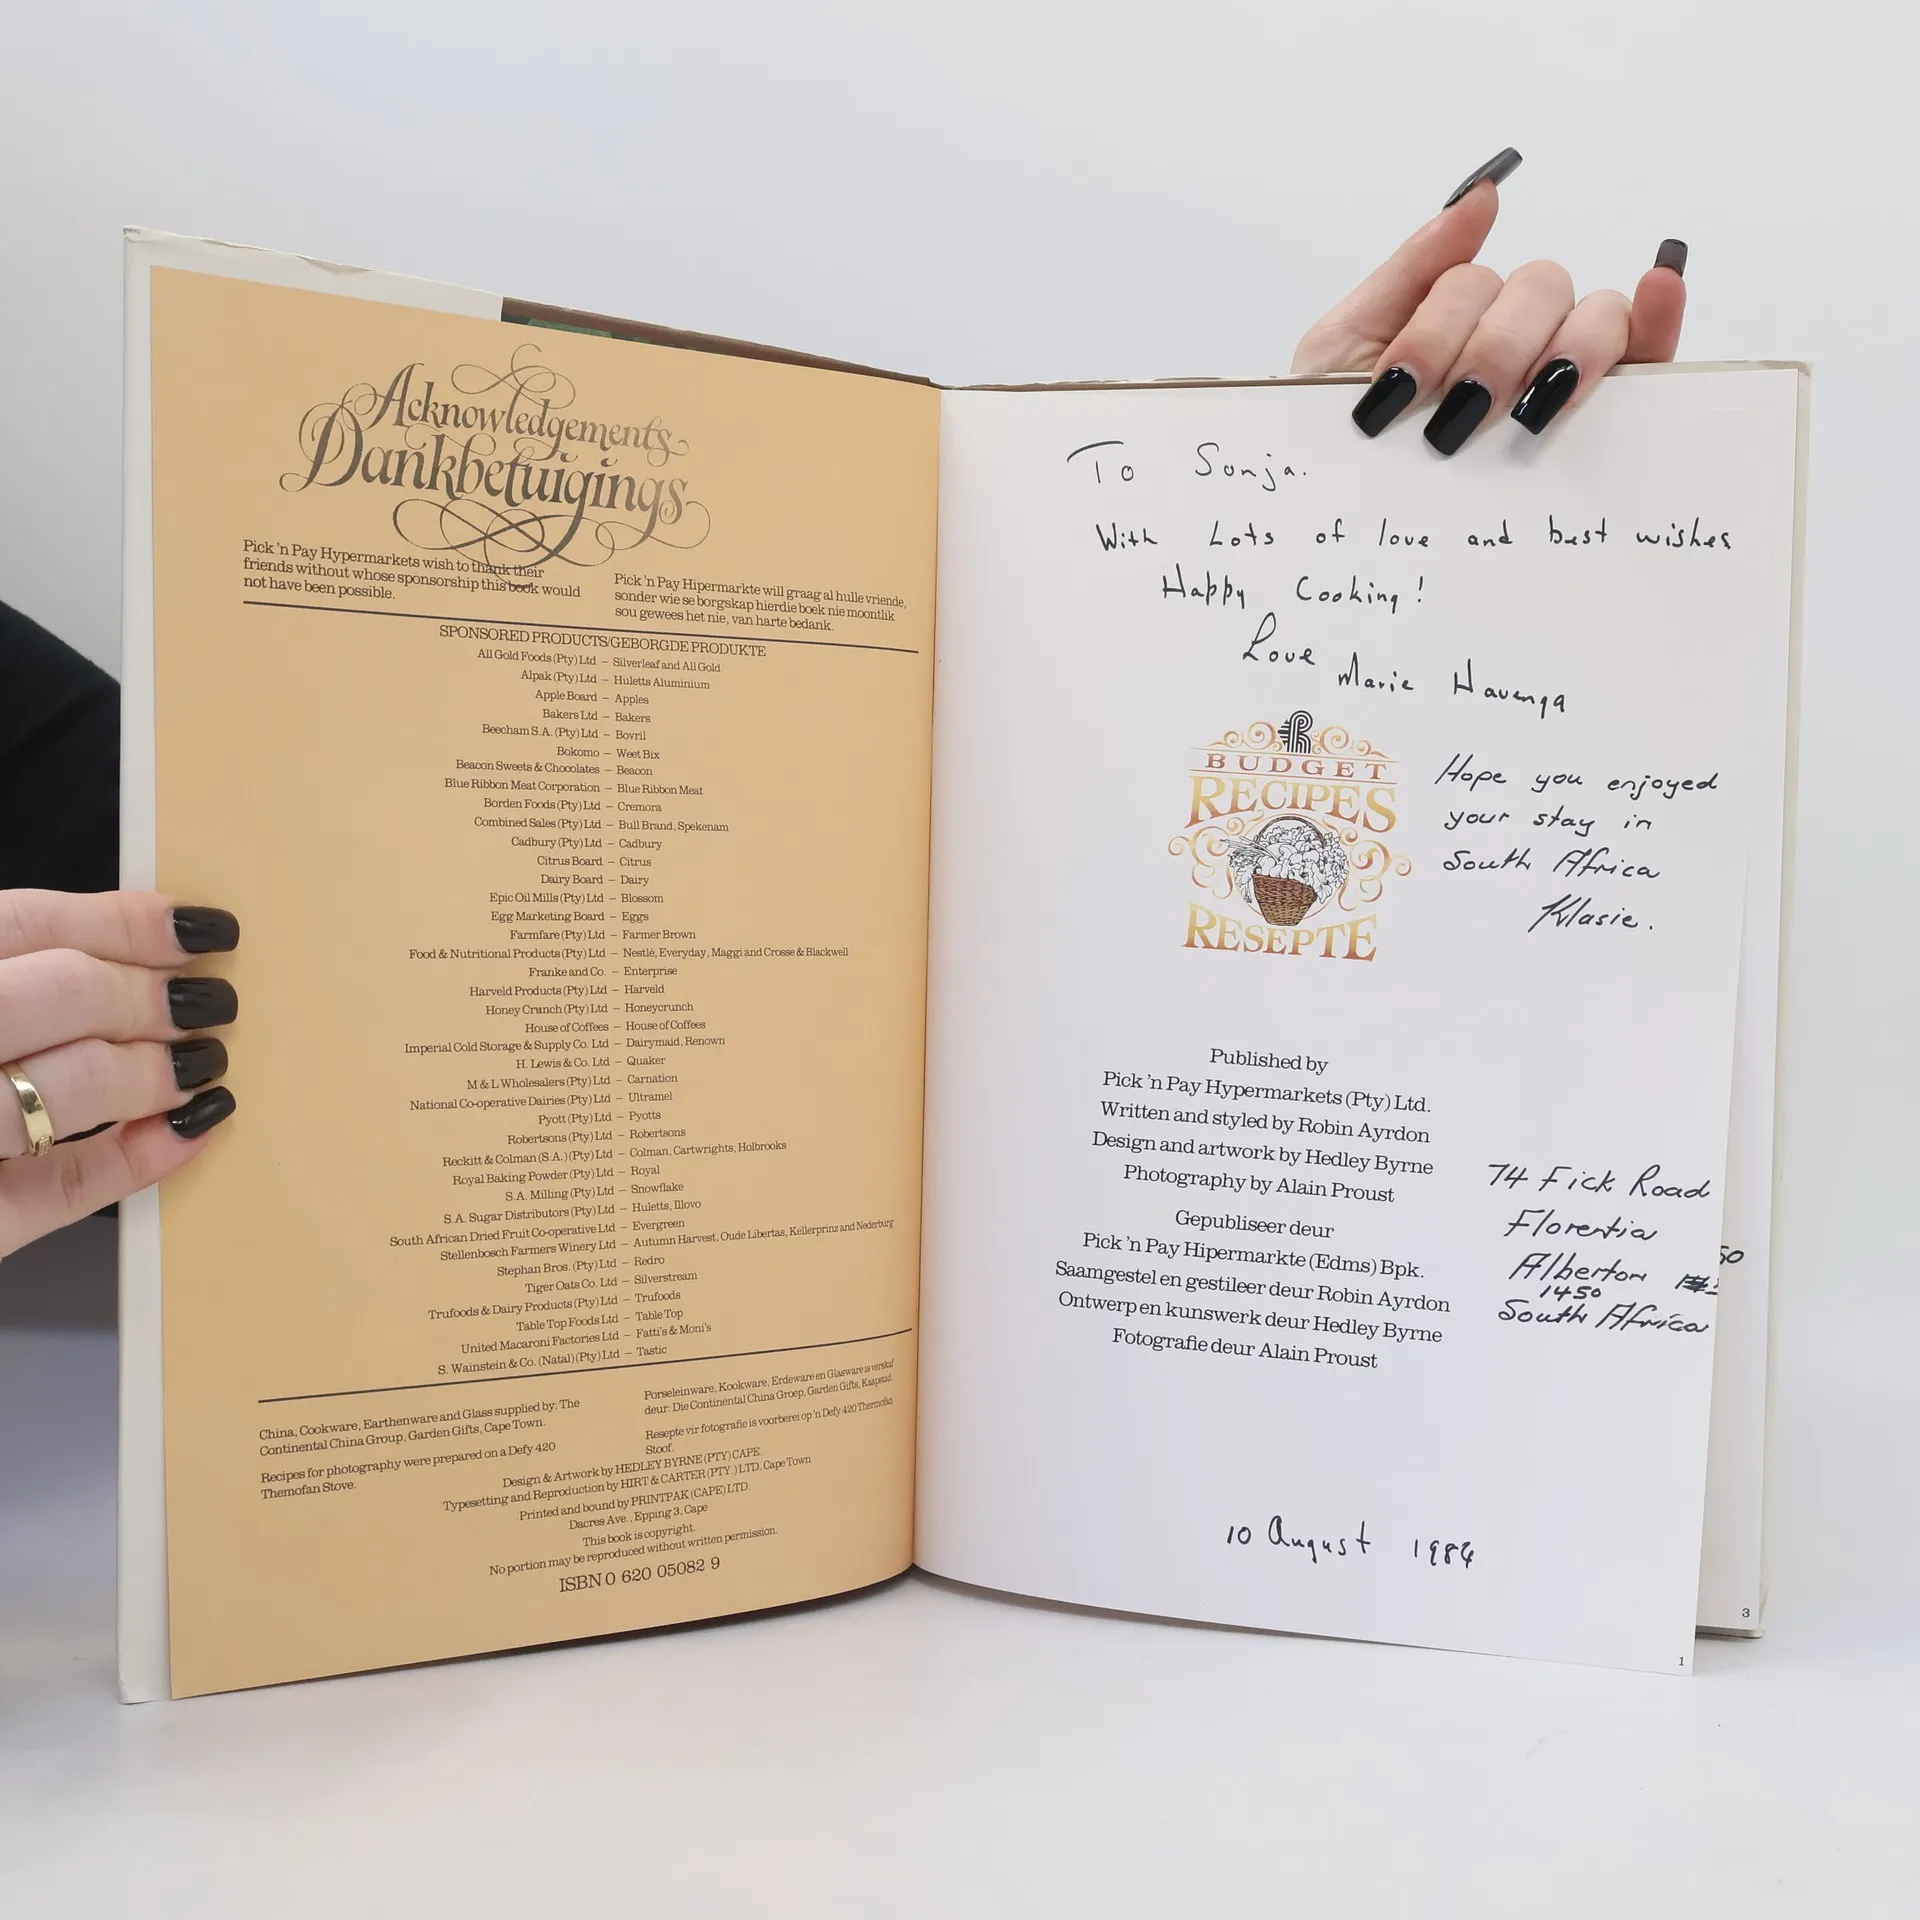 Acknowledgements
Dankbetuigings
Pick 'n Pay Hypermarkets wish to thank their
friends without whose sponsorship this book would
not have been possible.
Pick 'n Pay Hipermarkte will graag al hulle vriende,
sonder wie se borgskap hierdie boek nie moontlik
sou gewees het nie, van harte bedank.
SPONSORED PRODUCTS/GEBORGDE PRODUKTE
All Gold Foods (Pty) Ltd – Silverleaf and All Gold
Alpak (Pty) Ltd – Huletts Aluminium
Apple Board – Apples
Bakers Ltd – Bakers
Beecham S.A. (Pty) Ltd – Bovril
Bokomo – Weet Bix
Beacon Sweets & Chocolates – Beacon
Blue Ribbon Meat Corporation – Blue Ribbon Meat
Borden Foods (Pty) Ltd – Cremora
Combined Sales (Pty) Ltd – Bull Brand, Spekenam
Cadbury (Pty) Ltd – Cadbury
Citrus Board – Citrus
Dairy Board – Dairy
Epic Oil Mills (Pty) Ltd – Blossom
Egg Marketing Board – Eggs
Farmfare (Pty) Ltd – Farmer Brown
Food & Nutritional Products (Pty) Ltd – Nestlé, Everyday, Maggi and Crosse & Blackwell
Franke and Co. – Enterprise
Harveld Products (Pty) Ltd – Harveld
Honey Crunch (Pty) Ltd – Honeycrunch
House of Coffees – House of Coffees
Imperial Cold Storage & Supply Co. Ltd – Dairymaid, Renown
H. Lewis & Co. Ltd – Quaker
M & L Wholesalers (Pty) Ltd – Carnation
National Co-operative Dairies (Pty) Ltd – Ultramel
Pyott (Pty) Ltd – Pyotts
Robertsons (Pty) Ltd – Robertsons
Reckitt & Colman (S.A.) (Pty) Ltd – Colman, Cartwrights, Holbrooks
Royal Baking Powder (Pty) Ltd – Royal
S.A. Milling (Pty) Ltd – Snowflake
S.A. Sugar Distributors (Pty) Ltd – Huletts, Illovo
South African Dried Fruit Co-operative Ltd – Evergreen
Stellenbosch Farmers Winery Ltd – Autumn Harvest, Oude Libertas, Kellerprinz and Nederburg
Stephan Bros. (Pty) Ltd – Redro
Tiger Oats Co. Ltd – Silverstream
Trufoods & Dairy Products (Pty) Ltd – Trufoods
Table Top Foods Ltd – Table Top
United Macaroni Factories Ltd – Fatti's & Moni's
S. Wainstein & Co. (Natal) (Pty) Ltd – Tastic
China, Cookware, Earthenware and Glass supplied by: The
Continental China Group, Garden Gifts, Cape Town.
Recipes for photography were prepared on a Defy 420
Themofan Stove.
Porseleinware, Kookware, Erdeware en Glasware is verskaf
deur: Die Continental China Groep, Garden Gifts, Kaapstad.
Resepte vir fotografie is voorberei op 'n Defy 420 Thermofan
Stoof.
Design & Artwork by HEDLEY BYRNE (PTY) CAPE.
Typesetting and Reproduction by HIRT & CARTER (PTY.) LTD. Cape Town
Printed and bound by PRINTPAK (CAPE) LTD.
Dacres Ave., Epping 3, Cape
This book is copyright.
No portion may be reproduced without written permission.
ISBN 0 620 05082 9
To Sonja.
With Lots of love and best wishes
Happy Cooking!
Love Marie Havenga
BUDGET
RECIPES
RESEPTE
Hope you enjoyed
your stay in
South Africa
Klasie.
Published by
Pick 'n Pay Hypermarkets (Pty) Ltd.
Written and styled by Robin Ayrdon
Design and artwork by Hedley Byrne
Photography by Alain Proust
Gepubliseer deur
Pick 'n Pay Hipermarkte (Edms) Bpk.
Saamgestel en gestileer deur Robin Ayrdon
Ontwerp en kunswerk deur Hedley Byrne
Fotografie deur Alain Proust
74 Fick Road
Florentia
Alberton
1450
South Africa
50
10 August 1984
1
3